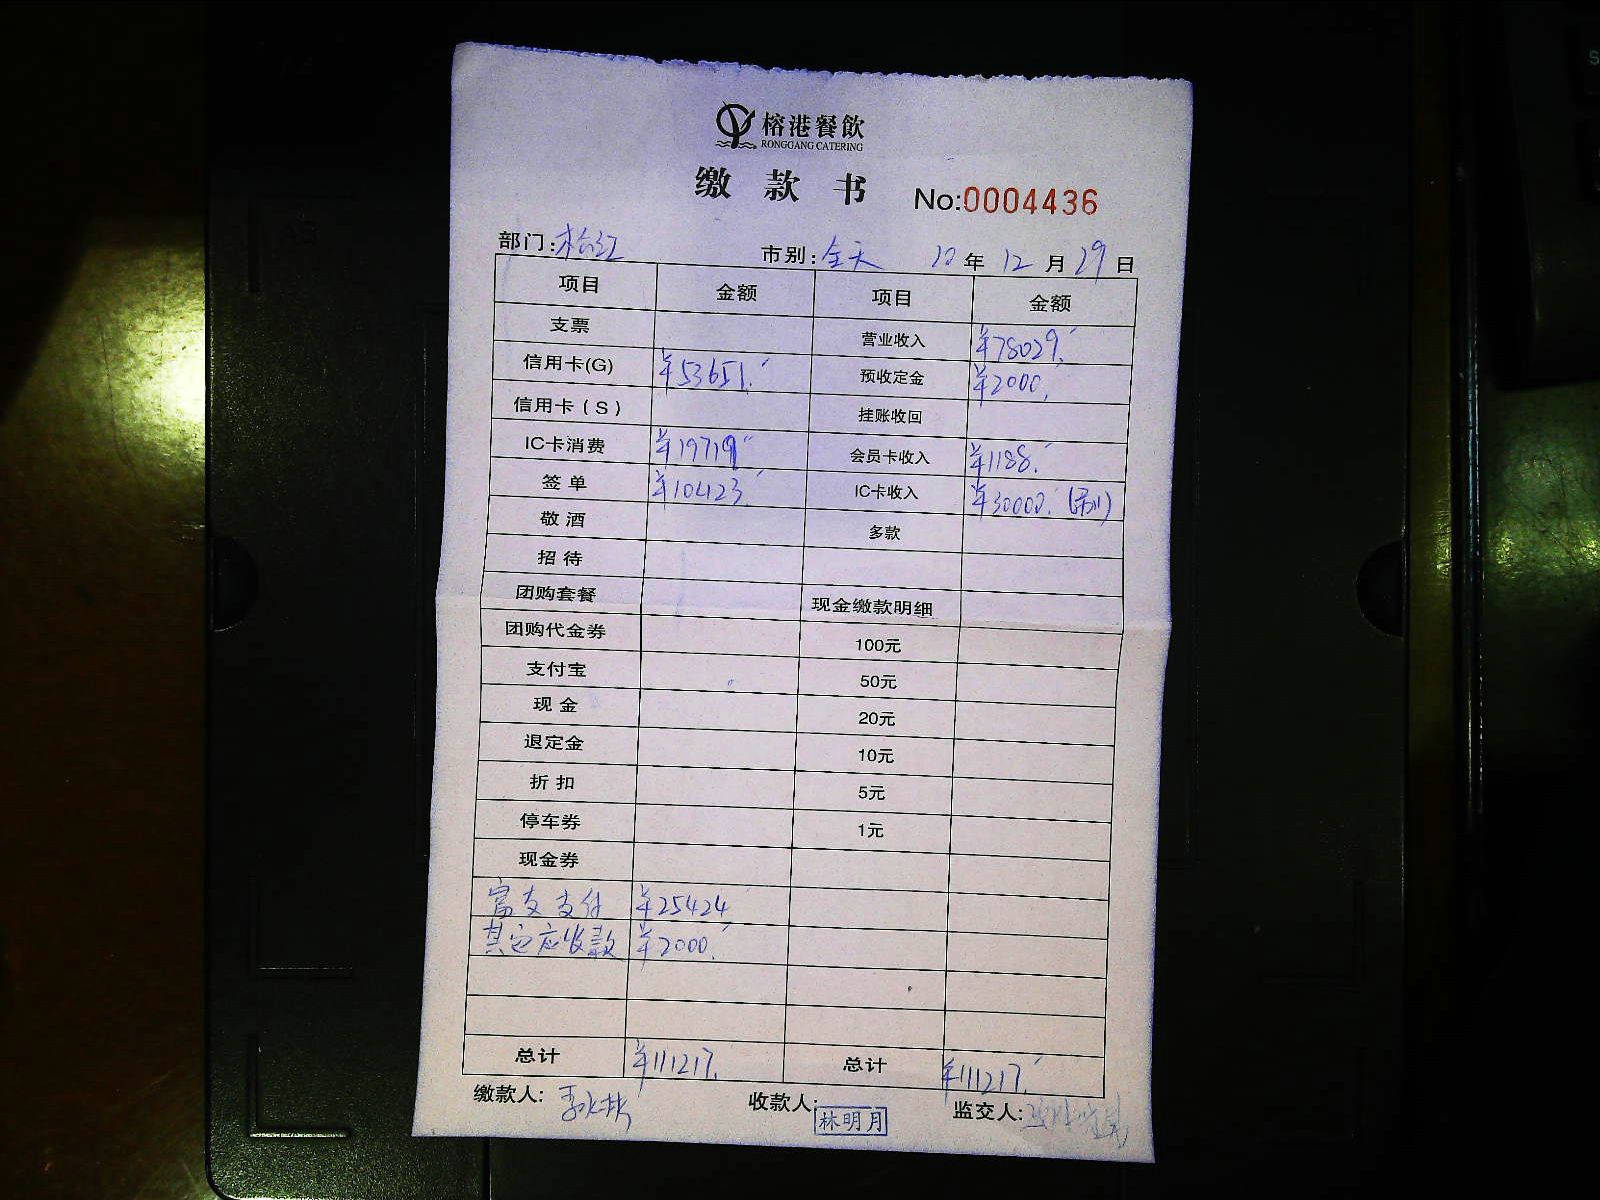 榕港餐飲
RONGGANG CATERING
缴款书 No:0004436
部门: 市别:全天 20年12月29日
项目 金额 项目 金额
支票 营业收入 ¥78029.
信用卡(G) ¥53651. 预收定金 ¥2000.
信用卡(S) 挂账收回
IC卡消费 ¥19719 会员卡收入 ¥1188.
签单 ¥10423 IC卡收入 ¥30000.
敬酒 多款
招待
团购套餐 现金缴款明细
团购代金券 100元
支付宝 50元
现金 20元
退定金 10元
折扣 5元
停车券 1元
现金券
富友支付 ¥25424
其它应收款 ¥2000.
总计 ¥111217. 总计 ¥111217.
缴款人: 收款人:林明月 监交人: